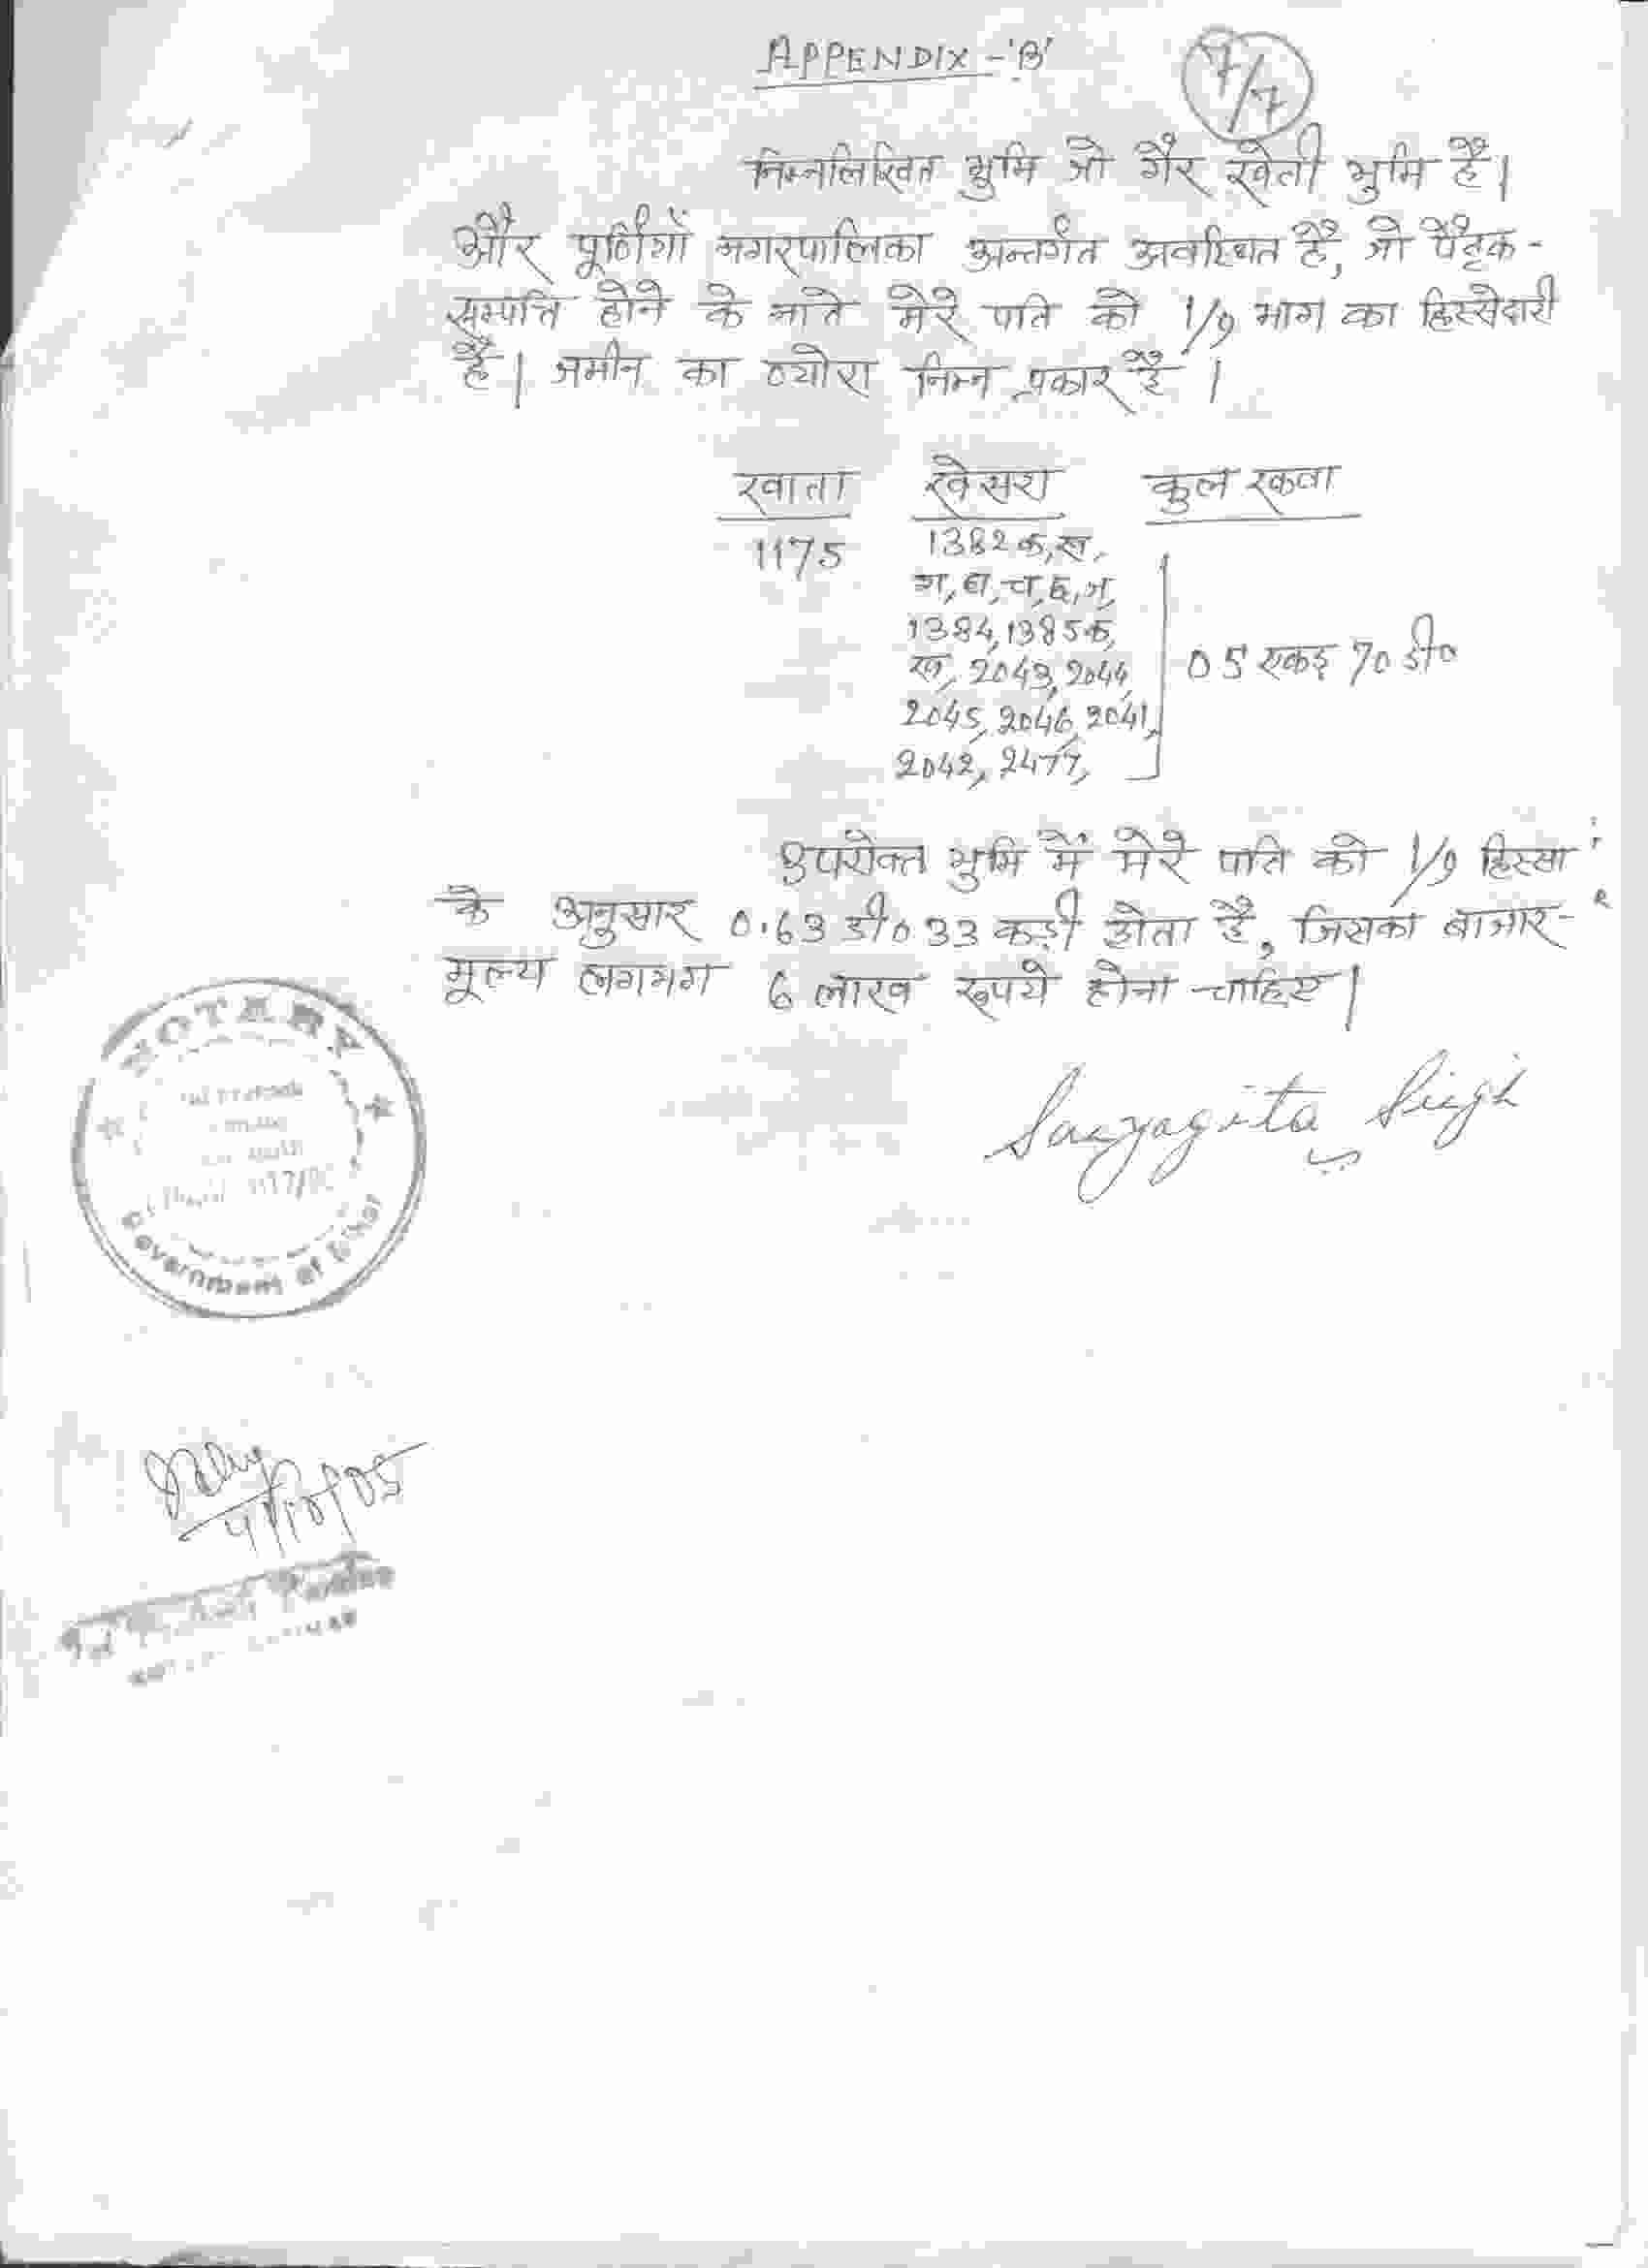 APPENDIX - 'B'
7/7
निम्नलिखित भुमि जो गैर खेती भुमि है।
और पूर्णियाँ नगरपालिका अन्तर्गत अवस्थित है, जो पैतृक-
सम्पत्ति होने के नाते मेरे पति को 1/9 भाग का हिस्सेदारी
है। जमीन का व्योरा निम्न प्रकार है।
खाता खेसरा कुल रकवा
1175 1382 क,ख,
ग,घ,च,छ,ज,
1384,1385क,
ख, 2043, 2044,
05 एकड़ 70 डी०
2045, 2046, 2041,
2042, 2477,
उपरोक्त भुमि में मेरे पति को 1/9 हिस्सा
के अनुसार 0.63 डी० 33 कड़ी होता है, जिसका बाजार-
मूल्य लगभग 6 लाख रूपये होना चाहिए।
Suryagita Singh
NOTARY
1177/
Government of Bihar
4/10/05